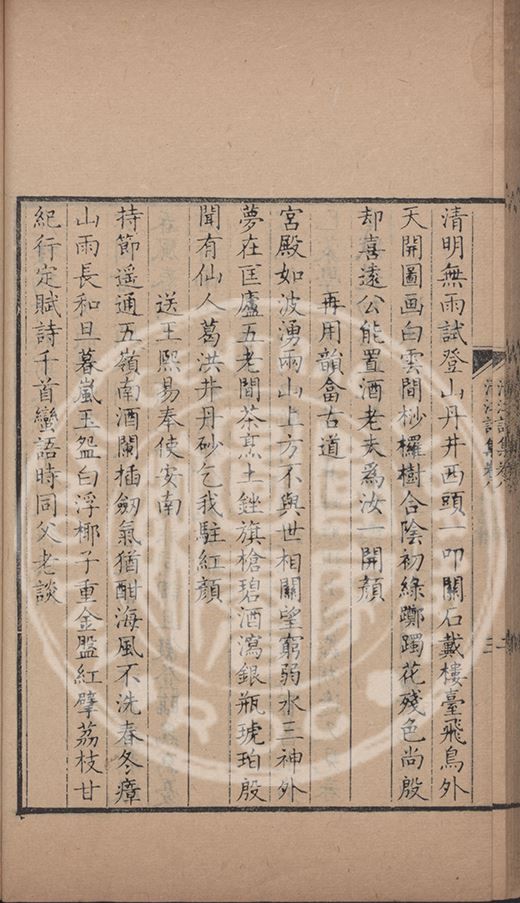 清明無雨試登山丹井西頭一叩關石戴樓臺飛鳥外
天開圖画白雲間桫欏樹合陰初綠躑躅花殘色尚殷
却喜遠公能置酒老夫爲汝一開顔
再用韻畣古道
宮殿如波湧兩山上方不與世相關望窮弱水三神外
夢在匡廬五老間茶烹土銼旗槍碧酒瀉銀瓶琥珀殷
聞有仙人葛洪井丹砂乞我駐紅顔
送王熙易奉使安南
持節遥通五嶺南酒闌插劒氣猶酣海風不洗春冬瘴
山雨長和旦暮嵐玉盌白浮椰子重金盤紅擘荔枝甘
紀行定賦詩千首蠻語時同父老談